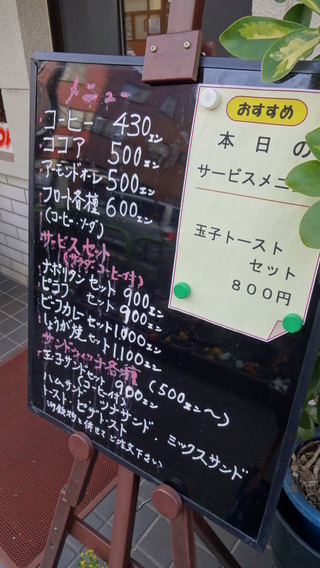 メニュー
コーヒー 430エン
ココア 500エン
アーモンドオーレ 500エン
フロート各種 600エン
(コーヒー・ソーダ)
サービスセット
(サラダ・コーヒー付)
ナポリタン セット 900エン
ピラフ セット 900エン
ビーフカレーセット 1,000エン
しょうが焼セット 1100エン
サンドウィッチ各種
(500エン〜)
玉子サンドセット 900エン
(コーヒー付)
ハムサンド・ツナサンド・ミックスサンド
トースト・ピザトースト
御飲物と併せてご注文下さい
おすすめ
本日の
サービスメニ
玉子トースト
セット
800円